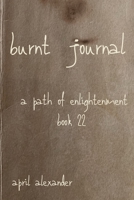 burnt journal
a path of enlightenment
book 22
april alexander